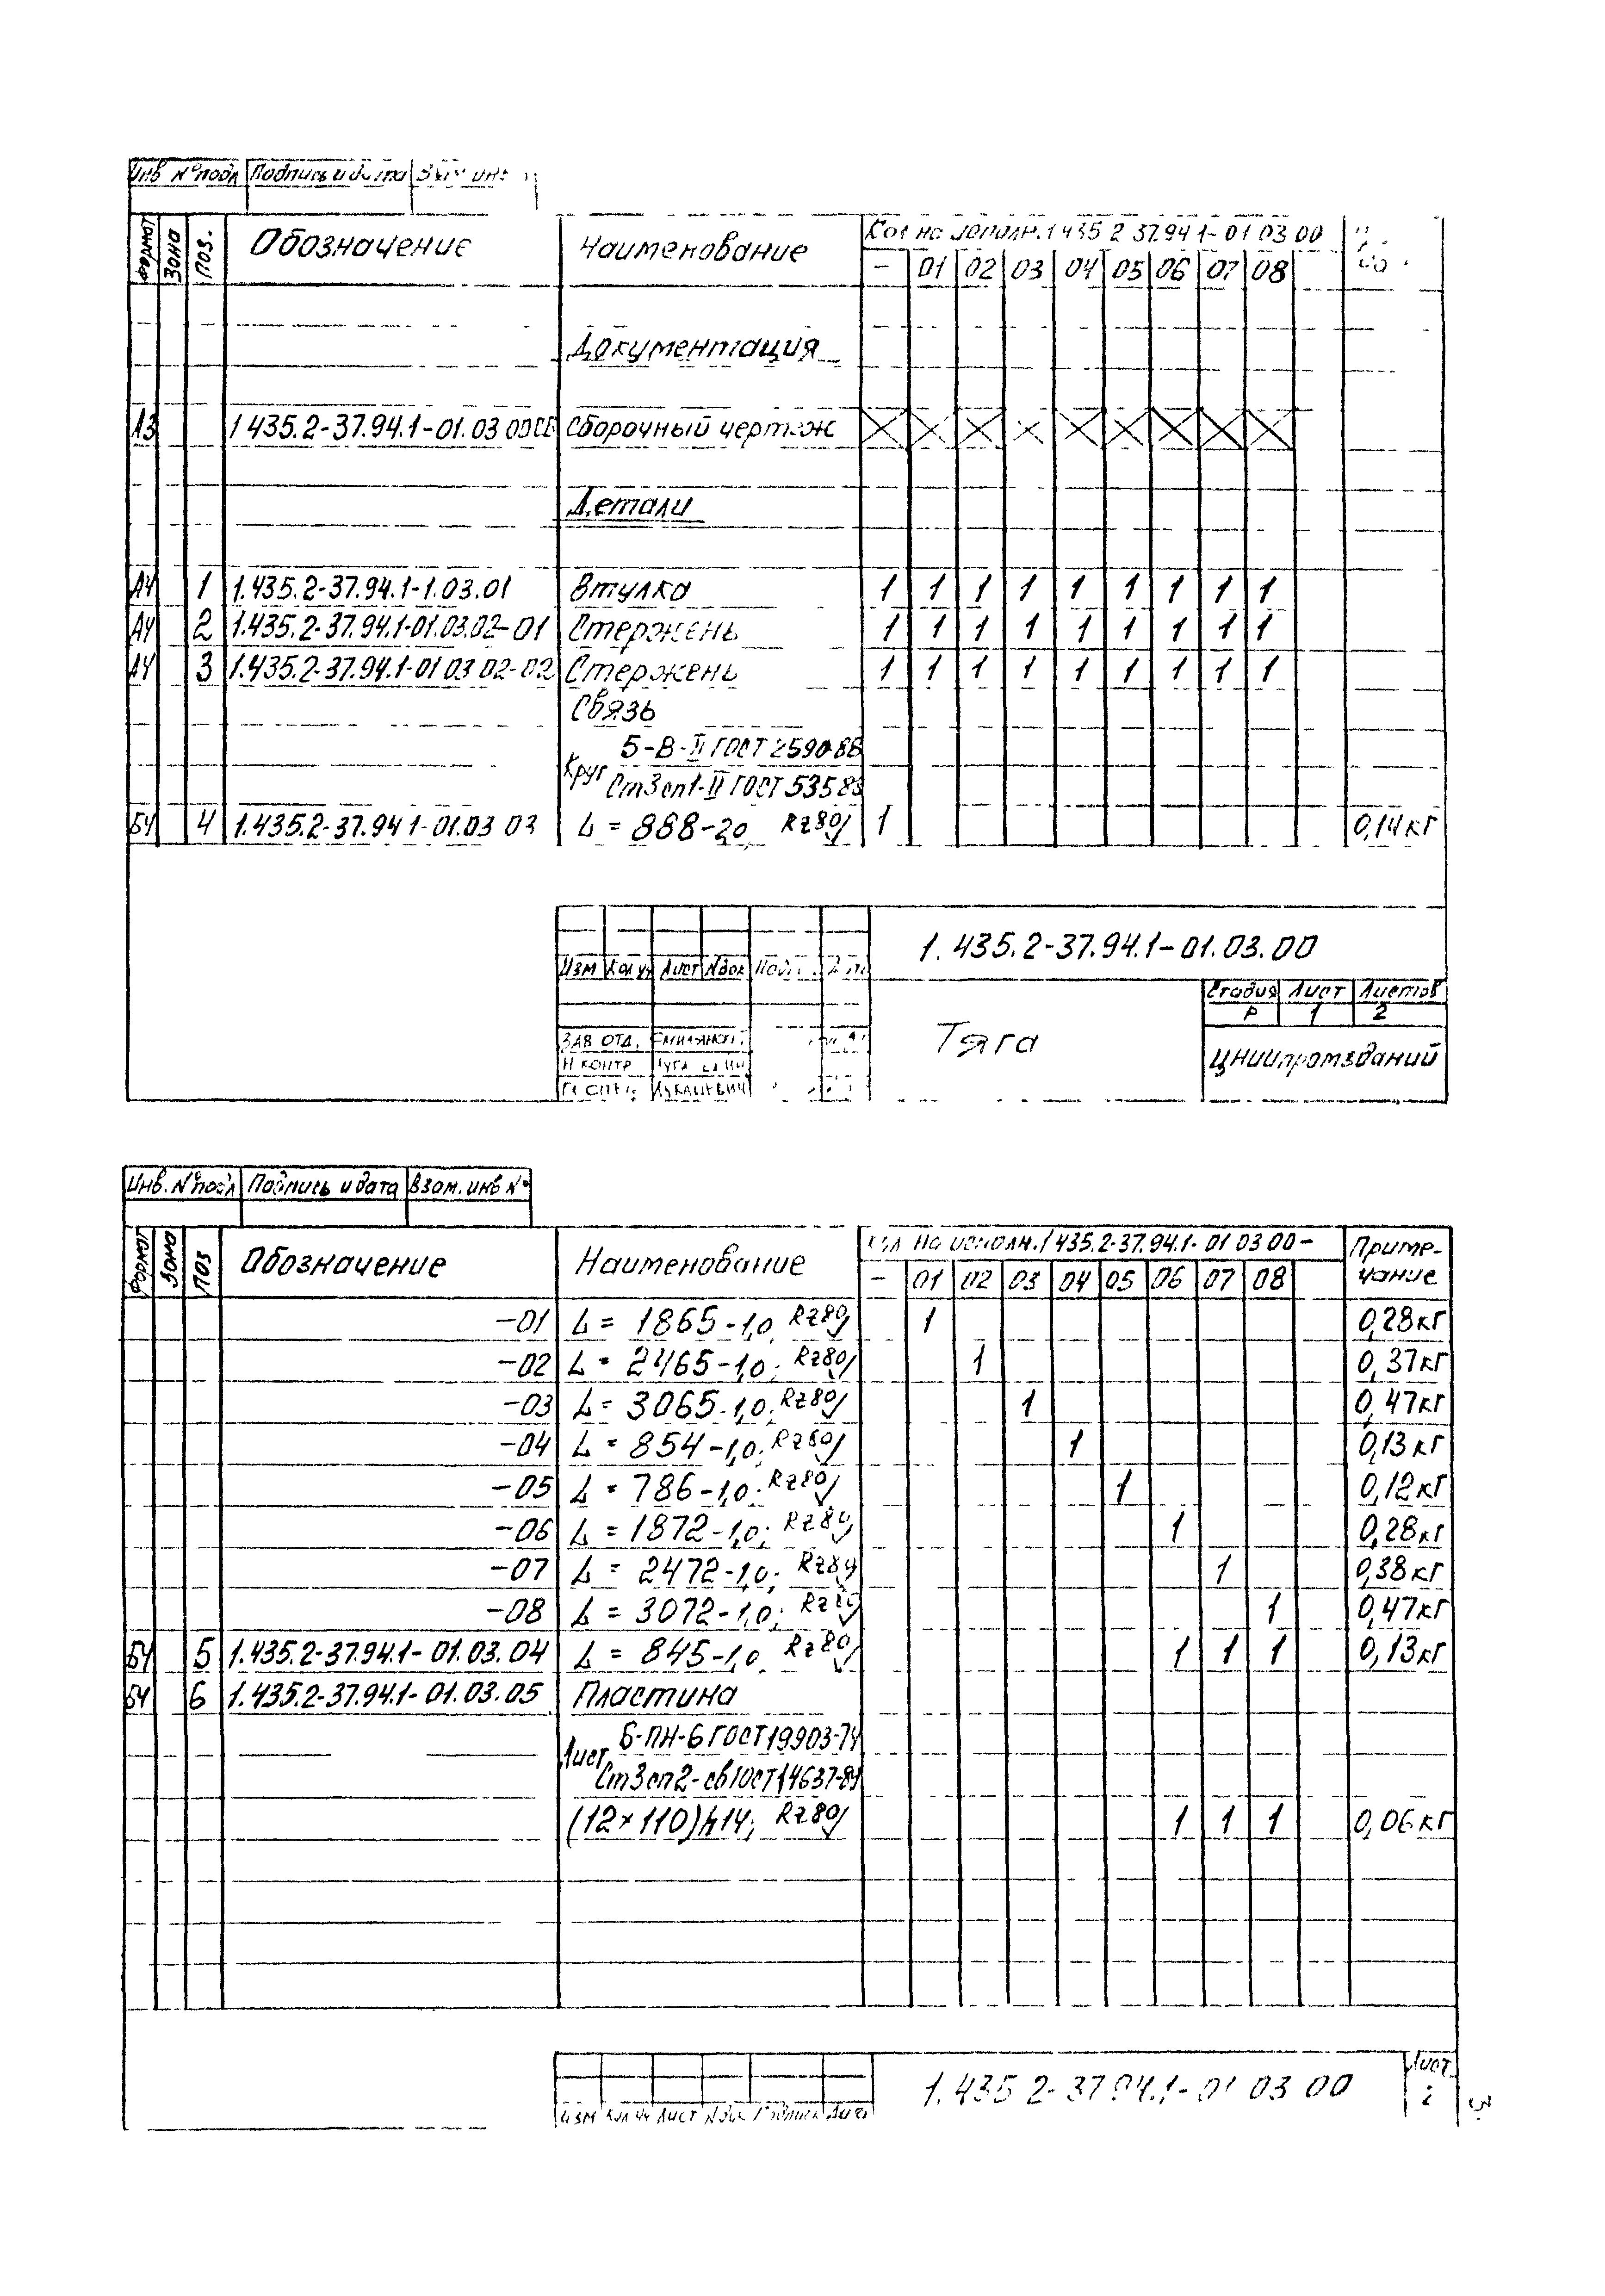 Инв №подл Подпись и дата
Формат Зона Поз. Обозначение Наименование Кол на исполн. 1 435 2 37.94 1- 01 03 00
- 01 02 03 04 05 06 07 08
Документация
А3 1 435.2-37.94.1-01.03 00СБ Сборочный чертеж
Детали
А4 1 1.435.2-37.94.1-1.03.01 Втулка 1 1 1 1 1 1 1 1 1
А4 2 1.435.2-37.94.1-01.03.02-01 Стержень 1 1 1 1 1 1 1 1 1
А4 3 1.435.2-37.94.1-01 03 02-02 Стержень 1 1 1 1 1 1 1 1 1
Связь
5-В-II ГОСТ 2590-88
Круг
Ст3сп1-II ГОСТ 535 88
БЧ 4 1.435.2-37.94 1-01.03 03 L = 868-2,0 Rz80 1 0,14кг
1.435.2-37.94.1-01.03.00
Изм Кол уч Лист Nдок
Стадия Лист Листов
Р 1 2
Тяга
ЗАВ ОТД.
Н КОНТР
ЛУКАШЕВИЧ
ЦНИИпромзданий
Инв. №подл Подпись и дата Взам. инв №
Формат Зона Поз Обозначение Наименование Кол на исполн. 1 435.2-37.94.1- 01 03 00- Приме-
- 01 02 03 04 05 06 07 08 чание
-01 L = 1865-1,0 Rz80 1 0,28кг
-02 L = 2465-1,0; Rz80 1 0,37кг
-03 L = 3065-1,0; Rz80 1 0,47кг
-04 L = 854-1,0; Rz80 1 0,13кг
-05 L = 786-1,0; Rz80 1 0,12кг
-06 L = 1872-1,0; Rz80 1 0,28кг
-07 L = 2472-1,0; Rz80 1 0,38кг
-08 L = 3072-1,0; Rz80 1 0,47кг
БЧ 5 1.435.2-37.94.1-01.03.04 L = 845-1,0 Rz80 1 1 1 0,13кг
БЧ 6 1.435.2-37.94.1-01.03.05 Пластина
6-ПН-6 ГОСТ 19903-74
Лист
Ст3сп2-св ГОСТ 14637-89
(12×110)h14; Rz80 1 1 1 0,06кг
1.435 2-37 94.1-01 03 00
Лист
2
Изм Кол уч Лист Nдок Подпись Дата